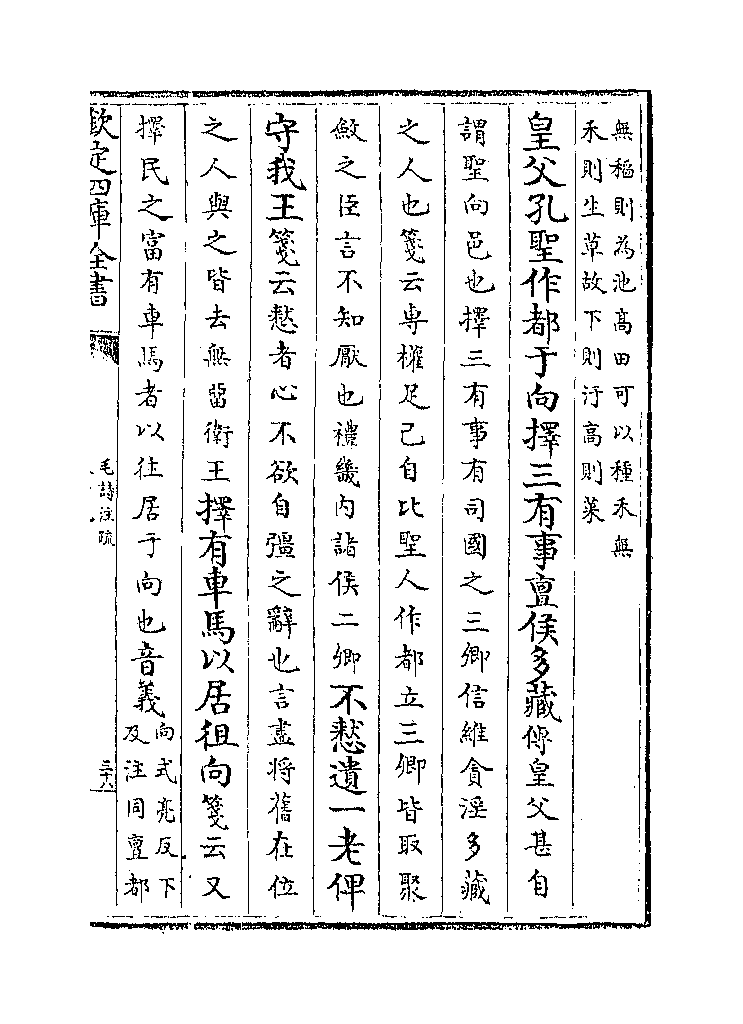 無稻則為池髙田可以種禾無
禾則生草故下則汙髙則萊
皇父孔聖作都于向擇三有事亶侯多藏傳皇父甚自
謂聖向邑也擇三有事有司國之三卿信維貪淫多藏
之人也箋云専權足己自比聖人作都立三卿皆取聚
斂之臣言不知厭也禮畿内諸侯二卿不憖遺一老俾
守我王箋云憖者心不欲自彊之辭也言盡將舊在位
之人與之皆去無留衛王擇有車馬以居徂向箋云又
擇民之富有車馬者以往居于向也音義向式亮反下
及注同亶都
欽定四庫全書
毛詩注疏
三十八